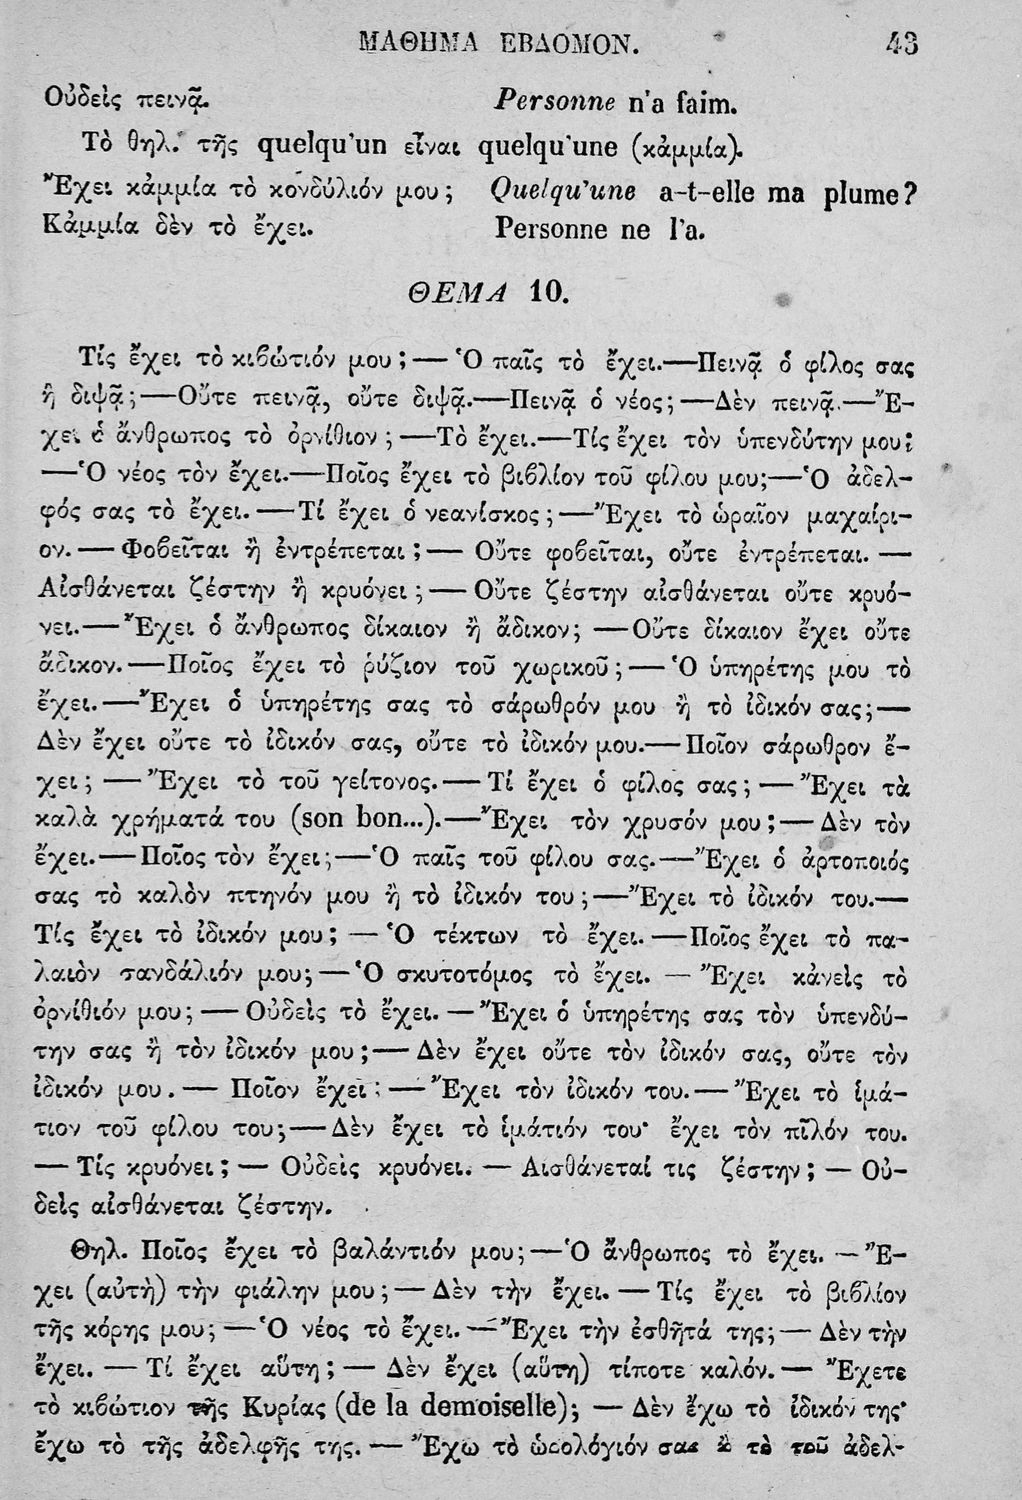 ΜΑΘΗΜΑ ΕΒΔΟΜΟΝ. 43
Οὐδεὶς πεινᾷ. Personne n'a faim.
Τὸ θηλ. τῆς quelqu'un εἶναι quelqu'une (κἀμμία).
Ἔχει κἀμμία τὸ κονδύλιόν μου; Quelqu'une a-t-elle ma plume?
Κἀμμία δὲν τὸ ἔχει. Personne ne l'a.
ΘΕΜΑ 10.
Τίς ἔχει τὸ κιβώτιόν μου; — Ὁ παῖς τὸ ἔχει.—Πεινᾷ ὁ φίλος σας
ἢ διψᾷ;—Οὔτε πεινᾷ, οὔτε διψᾷ.—Πεινᾷ ὁ νέος;—Δὲν πεινᾷ.—Ἔ-
χει ὁ ἄνθρωπος τὸ ὀρνίθιον;—Τὸ ἔχει.—Τίς ἔχει τὸν ὑπενδύτην μου;
—Ὁ νέος τὸν ἔχει.—Ποῖος ἔχει τὸ βιβλίον τοῦ φίλου μου;—Ὁ ἀδελ-
φός σας τὸ ἔχει.—Τί ἔχει ὁ νεανίσκος;—Ἔχει τὸ ὡραῖον μαχαίρι-
ον.— Φοβεῖται ἢ ἐντρέπεται;— Οὔτε φοβεῖται, οὔτε ἐντρέπεται. —
Αἰσθάνεται ζέστην ἢ κρυόνει;— Οὔτε ζέστην αἰσθάνεται οὔτε κρυό-
νει.—Ἔχει ὁ ἄνθρωπος δίκαιον ἢ ἄδικον; —Οὔτε δίκαιον ἔχει οὔτε
ἄδικον.—Ποῖος ἔχει τὸ ῥύζιον τοῦ χωρικοῦ;— Ὁ ὑπηρέτης μου τὸ
ἔχει.—Ἔχει ὁ ὑπηρέτης σας τὸ σάρωθρόν μου ἢ τὸ ἰδικόν σας;—
Δὲν ἔχει οὔτε τὸ ἰδικόν σας, οὔτε τὸ ἰδικόν μου.—Ποῖον σάρωθρον ἔ-
χει; —Ἔχει τὸ τοῦ γείτονος.— Τί ἔχει ὁ φίλος σας; — Ἔχει τὰ
καλὰ χρήματά του (son bon...).—Ἔχει τὸν χρυσόν μου;— Δὲν τὸν
ἔχει.—Ποῖος τὸν ἔχει;—Ὁ παῖς τοῦ φίλου σας.—Ἔχει ὁ ἀρτοποιός
σας τὸ καλὸν πτηνόν μου ἢ τὸ ἰδικόν του;—Ἔχει τὸ ἰδικόν του.—
Τίς ἔχει τὸ ἰδικόν μου; — Ὁ τέκτων τὸ ἔχει. —Ποῖος ἔχει τὸ πα-
λαιὸν σανδάλιόν μου;— Ὁ σκυτοτόμος τὸ ἔχει. — Ἔχει κἀνεὶς τὸ
ὀρνίθιόν μου;— Οὐδεὶς τὸ ἔχει. —Ἔχει ὁ ὑπηρέτης σας τὸν ὑπενδύ-
την σας ἢ τὸν ἰδικόν μου;— Δὲν ἔχει οὔτε τὸν ἰδικόν σας, οὔτε τὸν
ἰδικόν μου. — Ποῖον ἔχει; —Ἔχει τὸν ἰδικόν του.—Ἔχει τὸ ἱμά-
τιον τοῦ φίλου του;—Δὲν ἔχει τὸ ἱμάτιόν του· ἔχει τὸν πῖλόν του.
— Τίς κρυόνει; — Οὐδεὶς κρυόνει. — Αισθάνεταί τις ζέστην; — Οὐ-
δεὶς αἰσθάνεται ζέστην.
Θηλ. Ποῖος ἔχει τὸ βαλάντιόν μου;—Ὁ ἄνθρωπος τὸ ἔχει. — Ἔ-
χει (αὐτὴ) τὴν φιάλην μου;— Δὲν τὴν ἔχει. — Τίς ἔχει τὸ βιβλίον
τῆς κόρης μου; —Ὁ νέος τὸ ἔχει. —Ἔχει τὴν ἐσθῆτά της;— Δὲν τὴν
ἔχει. — Τί ἔχει αὕτη; — Δὲν ἔχει (αὕτη) τίποτε καλόν. — Ἔχετε
τὸ κιβώτιον τῆς Κυρίας (de la demoiselle); — Δὲν ἔχω τὸ ἰδικόν της·
ἔχω τὸ τῆς ἀδελφῆς της. — Ἔχω τὸ ὡρολόγιόν σας ἢ τὸ τοῦ ἀδελ-